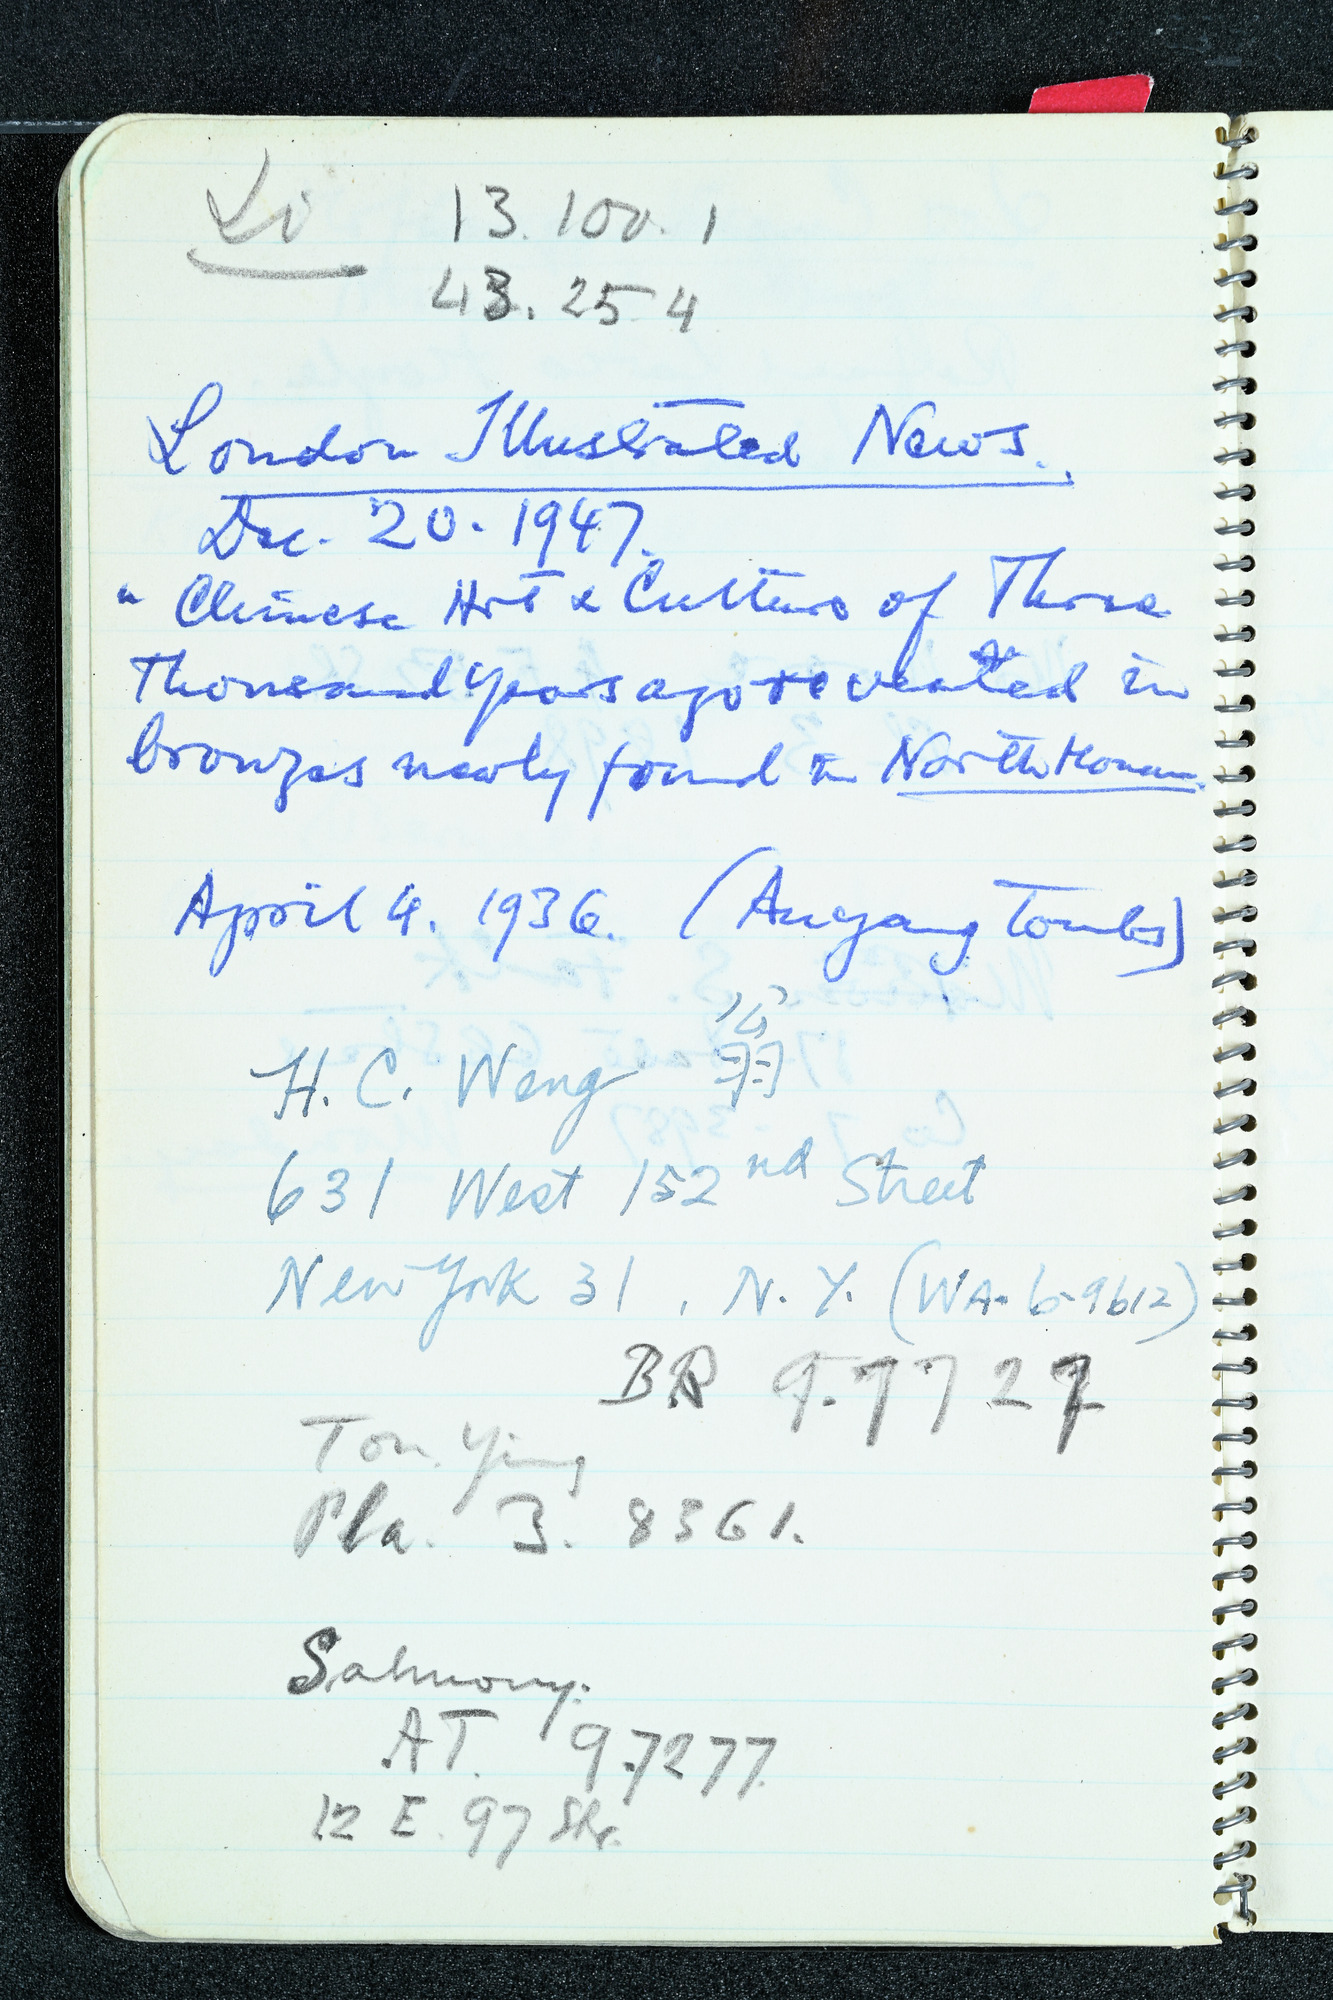 Li 13.100.1
43.25.4
London Illustrated News.
Dec. 20. 1947.
" Chinese Art & Culture of Three
Thousand Years ago revealed in
bronzes newly found in North Honan.
April 4. 1936. (Anyang Tombs)
H. C. Weng 翁
631 West 152nd Street
New York 31, N. Y. (WA-6-9612)
BR 9.7727
Ton. Ying
Pla. 3. 8361.
Salmony.
AT. 9.7277.
12 E. 97 Str.